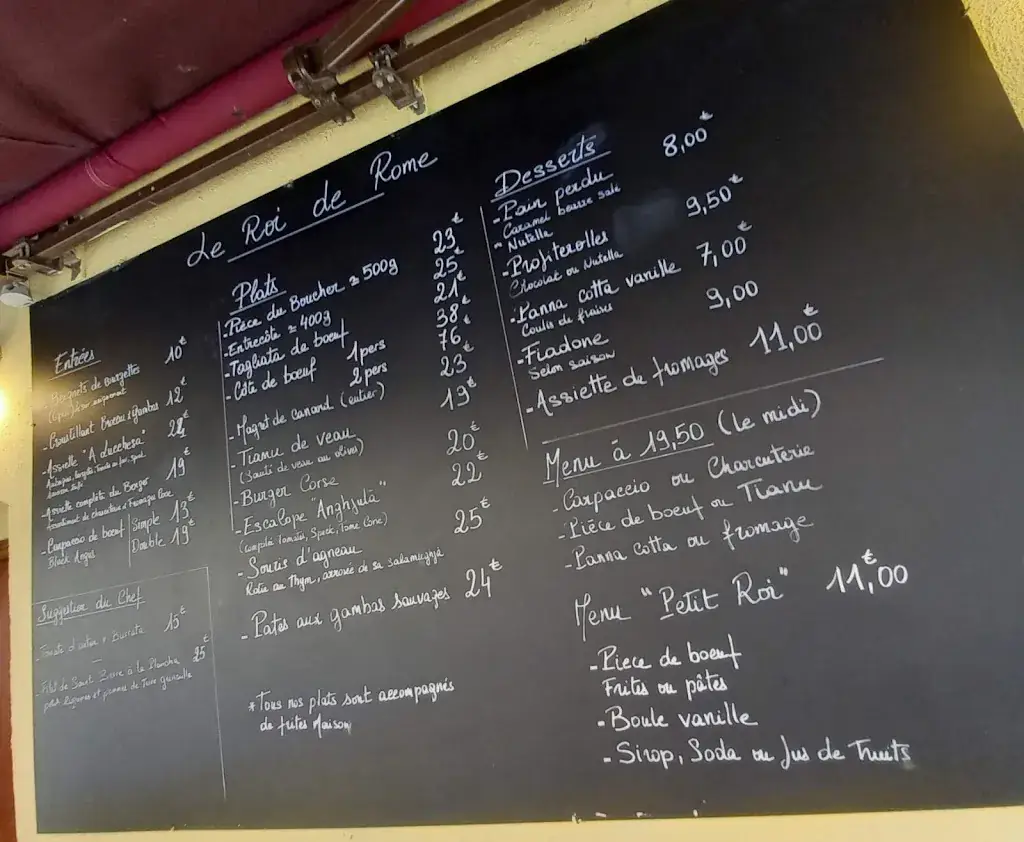 Le Roi de Rome
Entrées
- Beignets de courgettes 10€
- Croustillant Brocciu & Gambas 12€
- Assiette "A ducchessa" 24€
- Assiette complète du Berger 19€
Assortiment de charcuterie & Fromages Corse
- Carpaccio de boeuf Simple 13€
Black Angus Double 19€
Suggestion du Chef
Burrata 15€
- Filet de Saint Pierre à la Plancha 25€
Plats
- Pièce du Boucher ≃ 500g 23€
- Entrecôte ≃ 400g 25€
- Tagliata de boeuf 21€
- Côte de boeuf 1 pers 38€
2 pers 76€
- Magret de canard (entier) 23€
- Tianu de veau 19€
(Sauté de veau au olives)
- Burger Corse 20€
- Escalope "Anghjula" 22€
- Souris d'agneau 25€
Rotie au Thym, arrosée de sa salamughja
- Pates aux gambas sauvages 24€
* Tous nos plats sont accompagnés
de frites Maison
Desserts
- Pain perdu 8,00€
Caramel beurre salé
Nutella
- Profiterolles 9,50€
Chocolat ou Nutella
- Panna cotta vanille 7,00€
Coulis de fraises
- Fiadone 9,00
Selon saison
- Assiette de fromages 11,00€
Menu à 19,50 (le midi)
- Carpaccio ou Charcuterie
- Pièce de boeuf ou Tianu
- Panna cotta ou fromage
Menu "Petit Roi" 11,00€
- Piece de boeuf
Frites ou pâtes
- Boule vanille
- Sirop, Soda ou Jus de Fruits